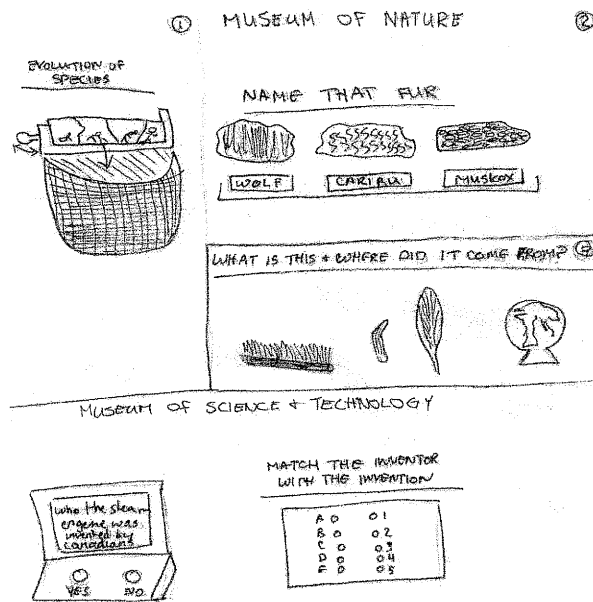 ① MUSEUM OF NATURE ②
EVOLUTION OF
SPECIES
NAME THAT FUR
WOLF CARIBU MUSKOX
WHAT IS THIS + WHERE DID IT COME FROM?
MUSEUM OF SCIENCE + TECHNOLOGY
Who the steam
engene was
invented by
canadians
YES NO
MATCH THE INVENTOR
WITH THE INVENTION
A 1
B 2
C 3
D 4
E 5